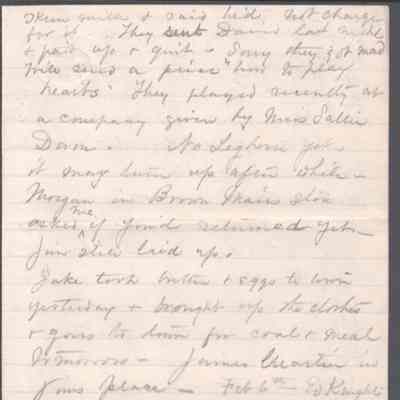 them milk & said he'd not charge
for it. They sent David last night
& paid up & quit. Sorry they got mad
Write send a piece "how to play
hearts" They played recently at
a company given by Miss Sallie
Dunn. No Leghorn yet
it may turn up after while -
Morgan in Brown Main store
asked me if you'd returned yet -
Jim still laid up.
Jake took butter & eggs to town
yesterday & brought up the clothes
& goes to town for coal & meal
tomorrow - James Martin in
your place - Feb 6th Ed Knight